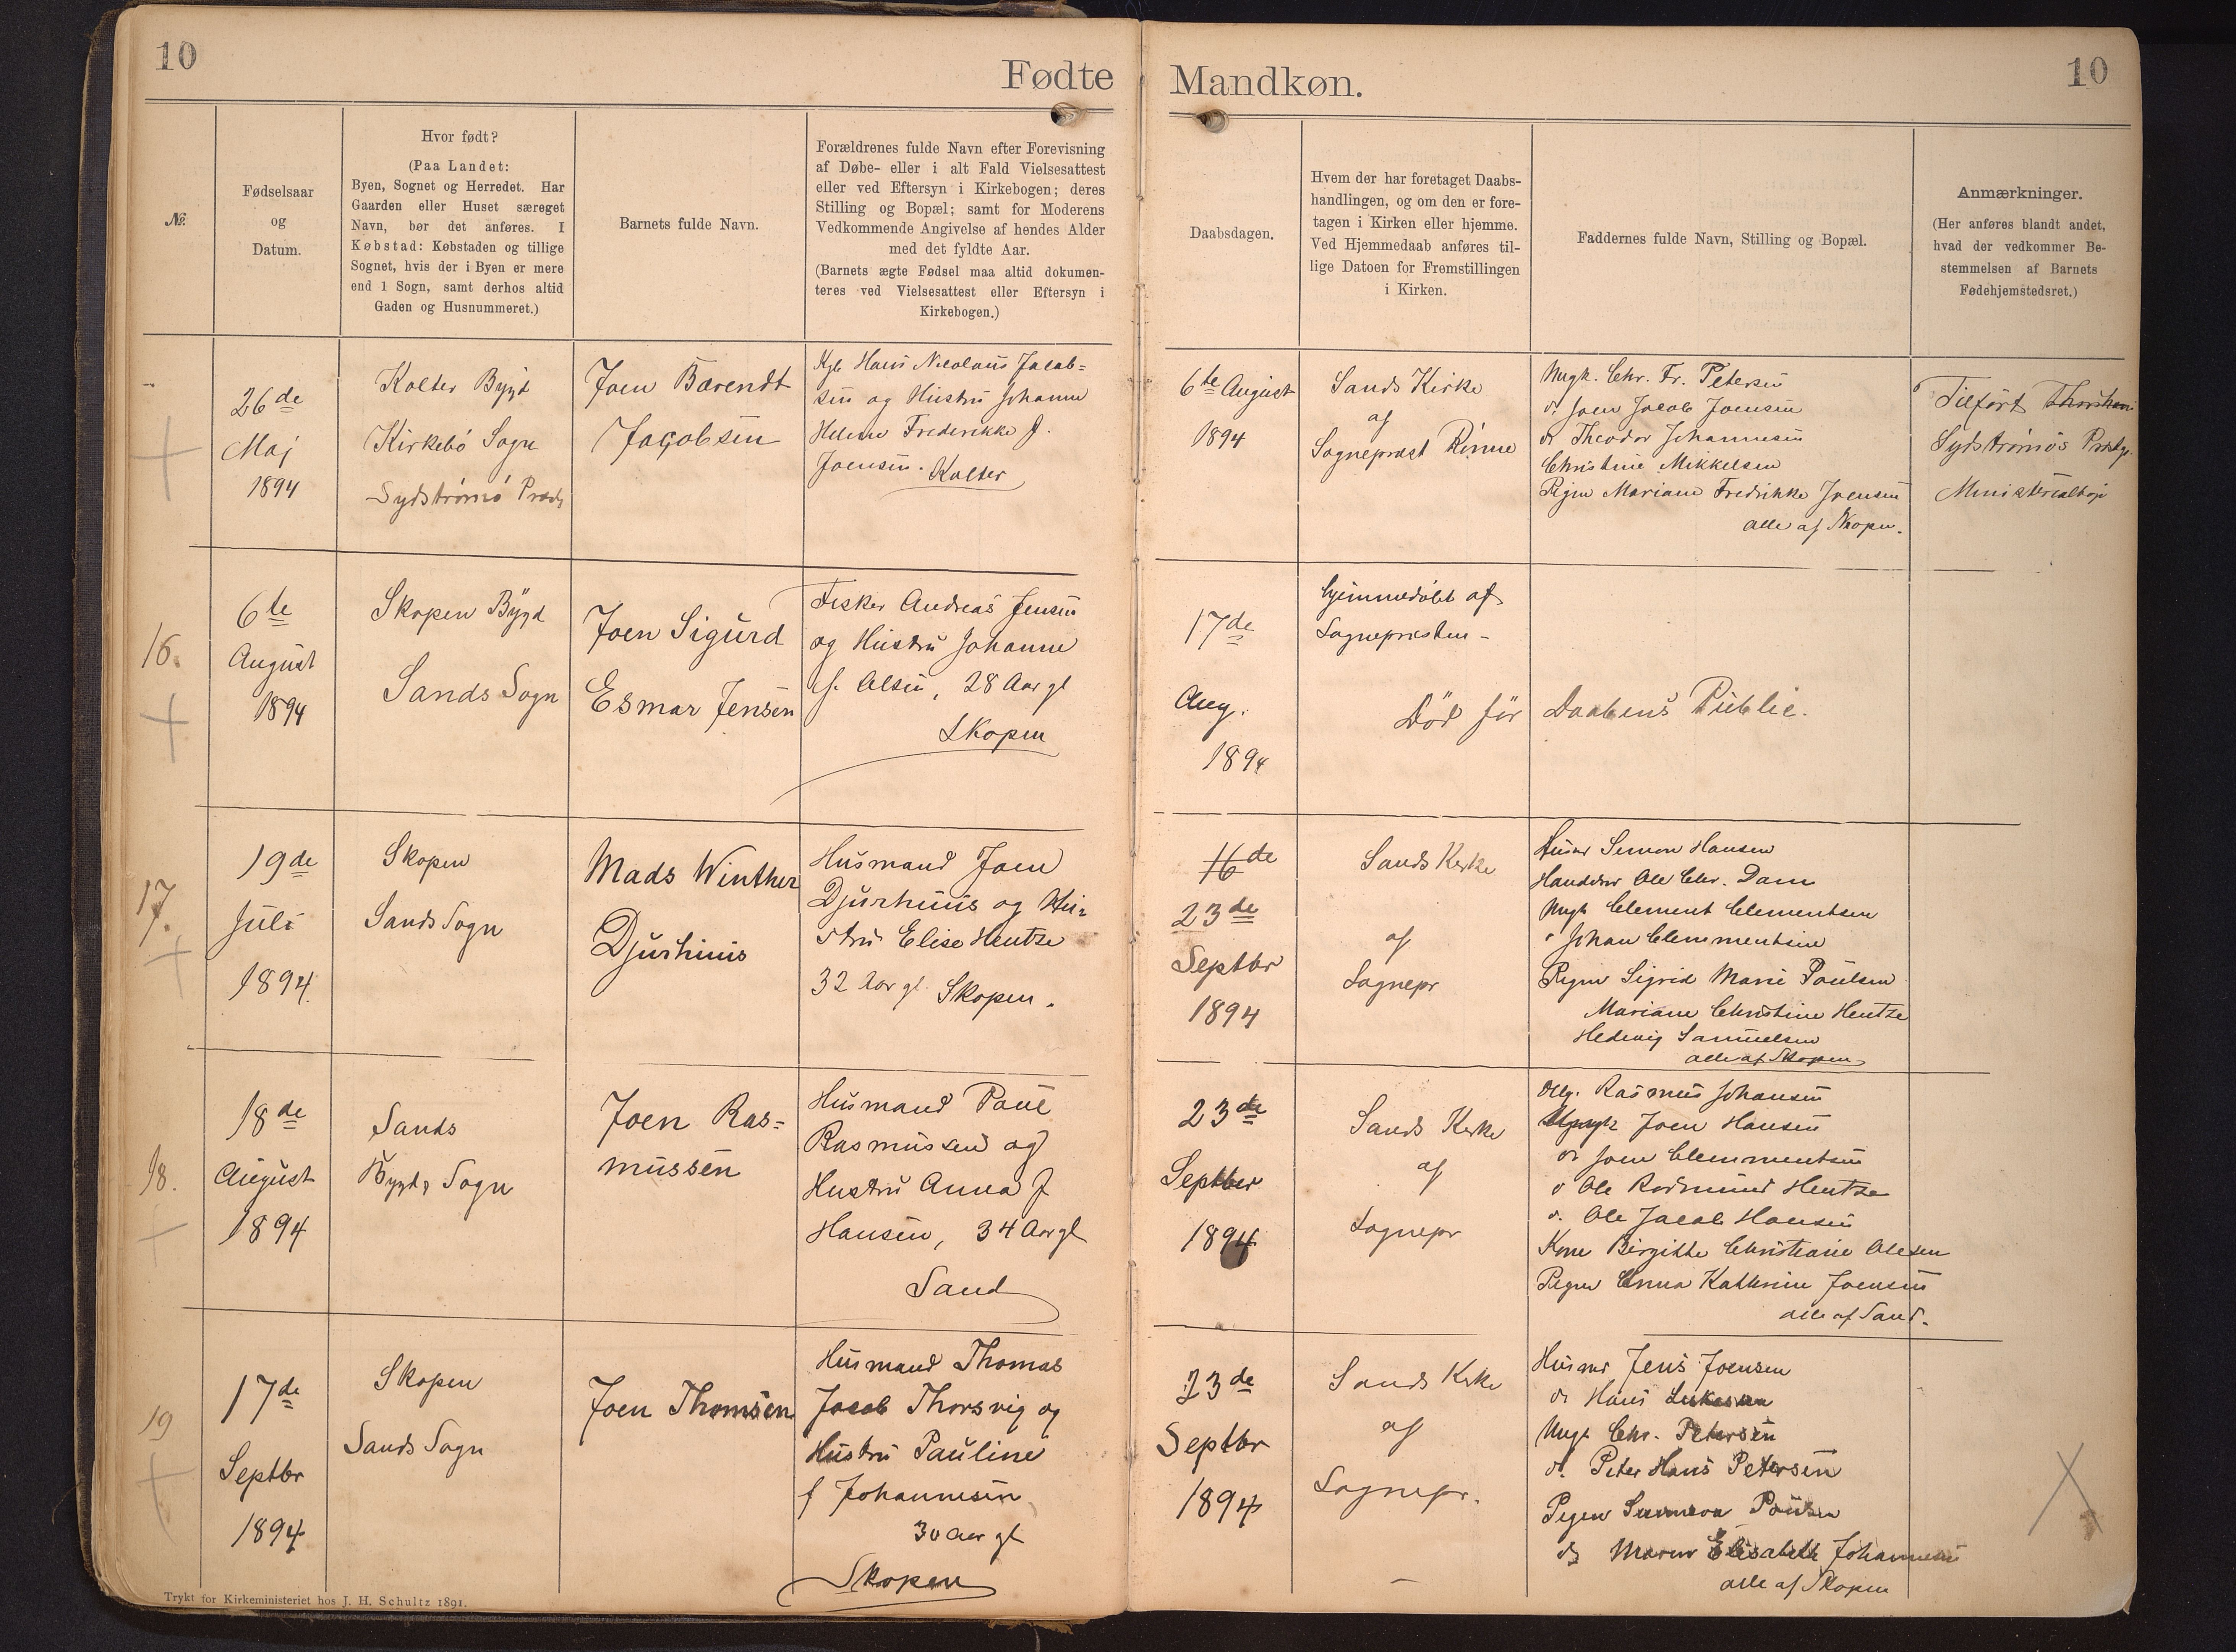 10
Fødte
Mandkøn.
10
№
Fødselsaar
og
Datum.
Hvor født?
(Paa Landet:
Byen, Sognet og Herredet. Har
Gaarden eller Huset særeget
Navn, bør det anføres. I
Købstad: Købstaden og tillige
Sognet, hvis der i Byen er mere
end 1 Sogn, samt derhos altid
Gaden og Husnummeret.)
Barnets fulde Navn.
Forældrenes fulde Navn efter Forevisning
af Døbe- eller i alt Fald Vielsesattest
eller ved Eftersyn i Kirkebogen; deres
Stilling og Bopæl; samt for Moderens
Vedkommende Angivelse af hendes Alder
med det fyldte Aar.
(Barnets ægte Fødsel maa altid dokumen-
teres ved Vielsesattest eller Eftersyn i
Kirkebogen.)
Daabsdagen.
Hvem der har foretaget Daabs-
handlingen, og om den er fore-
tagen i Kirken eller hjemme.
Ved Hjemmedaab anføres til-
lige Datoen for Fremstillingen
i Kirken.
Faddernes fulde Navn, Stilling og Bopæl.
Anmærkninger.
(Her anføres blandt andet,
hvad der vedkommer Be-
stemmelsen af Barnets
Fødehjemstedsret.)
26de
Maj
1894
Kolter Bygd
Kirkebö Sogn
Sydströmö
Joen Barendt
Jacobsen
Hans Nicolaus Jacob=
sen og Hustru Johanne
Helene Frederikke f.
Joensen. Kolter
6te August
1894
Sands Kirke
af
Sognepræst Rönne
Ungk. Chr. Fr. Petersen
d. Joen Jacob Joensen
do Theodor Johannesen
Christine Mikkelsen
Pigen Mariane Fredrikke Joensen
alle af Skopen.
Tilført
Sydströmös
Ministerialbog
16.
6te
August
1894
Skopen Bygd
Sands Sogn
Joen Sigurd
Esmar Jensen
Fisker Andreas Jensen
og Hustru Johanne
f. Olsen, 28 Aar gl
Skopen
17de
Aug.
1894
hjemmedöbt af
Sognepræsten -
Död för Daabens Public.
17.
19de
Juli
1894.
Skopen
Sands Sogn
Mads Winther
Djurhuus
Husmand Joen
Djurhuus og Hu=
stru Elise Hentze
32 Aar gl. Skopen.
16de
23de
Septbr
1894
Sands Kirke
af
Sognepr
Husmd Simon Hansen
Ole Chr. Dam
Ungk Clement Clementsen
" Johan Clemmentsen
Pigen Sigrid Marie Poulsen
Mariane Christine Hentze
Hedevig Samuelsen
alle af Skopen
18.
18de
August
1894
Sands
Bygd, Sogn
Joen Ras=
mussen
Husmand Poul
Rasmussen og
Hustru Anna f
Hansen, 34 Aar gl
Sand
23de
Septber
1894
Sands Kirke
af
Sognepr
Rasmus Johansen
Joen Hansen
do Joen Clemmentsen
d Ole Rodmund Hentze
d. Ole Jacob Hansen
Kone Birgitte Christiane Olesen
Pigen Anna Kathrine Joensen
alle af Sand.
19
17de
Septbr
1894
Skopen
Sands Sogn
Joen Thomsen
Husmand Thomas
Jacob Thorsvig og
Hustru Pauline
f Johannesen
30 Aar gl
Skopen
23de
Septbr
1894
Sands Kirke
af
Sognepr.
Husmd Jens Joensen
do Hans Lukassen
Ungk Chr. Petersen
d. Peter Hans Petersen
Pigen Sunneva Poulsen
do Maren Elisabeth Johannesen
alle af Skopen
Trykt for Kirkeministeriet hos J. H. Schultz 1891.